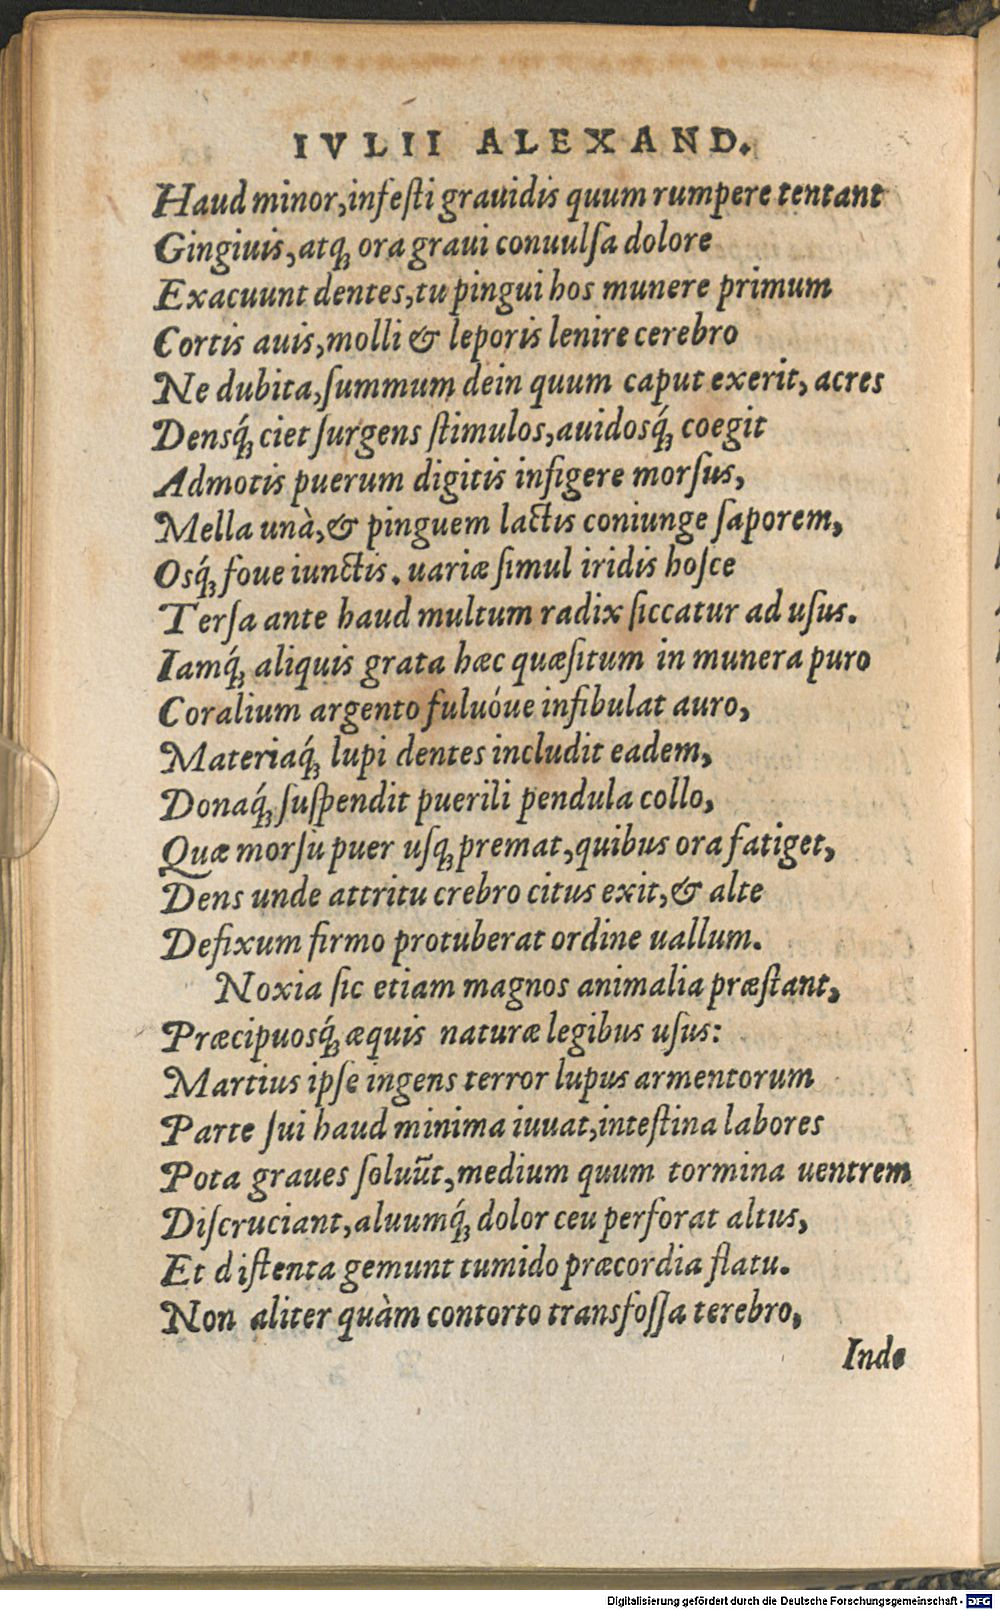 IVLII ALEXAND.
Haud minor, infeſti grauidis quum rumpere tentant
Gingiuis, atq́ꝫ ora graui conuulſa dolore
Exacuunt dentes, tu pingui hos munere primum
Cortis auis, molli & leporis lenire cerebro
Ne dubita, ſummum dein quum caput exerit, acres
Densq́ꝫ ciet ſurgens ſtimulos, auidosq́ꝫ coegit
Admotis puerum digitis infigere morſus,
Mella unà, & pinguem lactis coniunge ſaporem,
Osq́ꝫ foue iunctis. uariæ ſimul iridis hoſce
Terſa ante haud multum radix ſiccatur ad uſus.
Iamq́ꝫ aliquis grata hæc quæſitum in munera puro
Coralium argento fuluóue infibulat auro,
Materiaq́ꝫ lupi dentes includit eadem,
Donaq́ꝫ ſuſpendit puerili pendula collo,
Quæ morſu puer uſqꝫ premat, quibus ora fatiget,
Dens unde attritu crebro citus exit, & alte
Defixum firmo protuberat ordine uallum.
Noxia ſic etiam magnos animalia præſtant,
Præcipuosq́ꝫ æquis naturæ legibus uſus:
Martius ipſe ingens terror lupus armentorum
Parte ſui haud minima iuuat, inteſtina labores
Pota graues ſoluũt, medium quum tormina uentrem
Diſcruciant, aluumq́ꝫ dolor ceu perforat altus,
Et diſtenta gemunt tumido præcordia flatu.
Non aliter quàm contorto transfoſſa terebro,
Inde
Digitalisierung gefördert durch die Deutsche Forschungsgemeinschaft - DFG